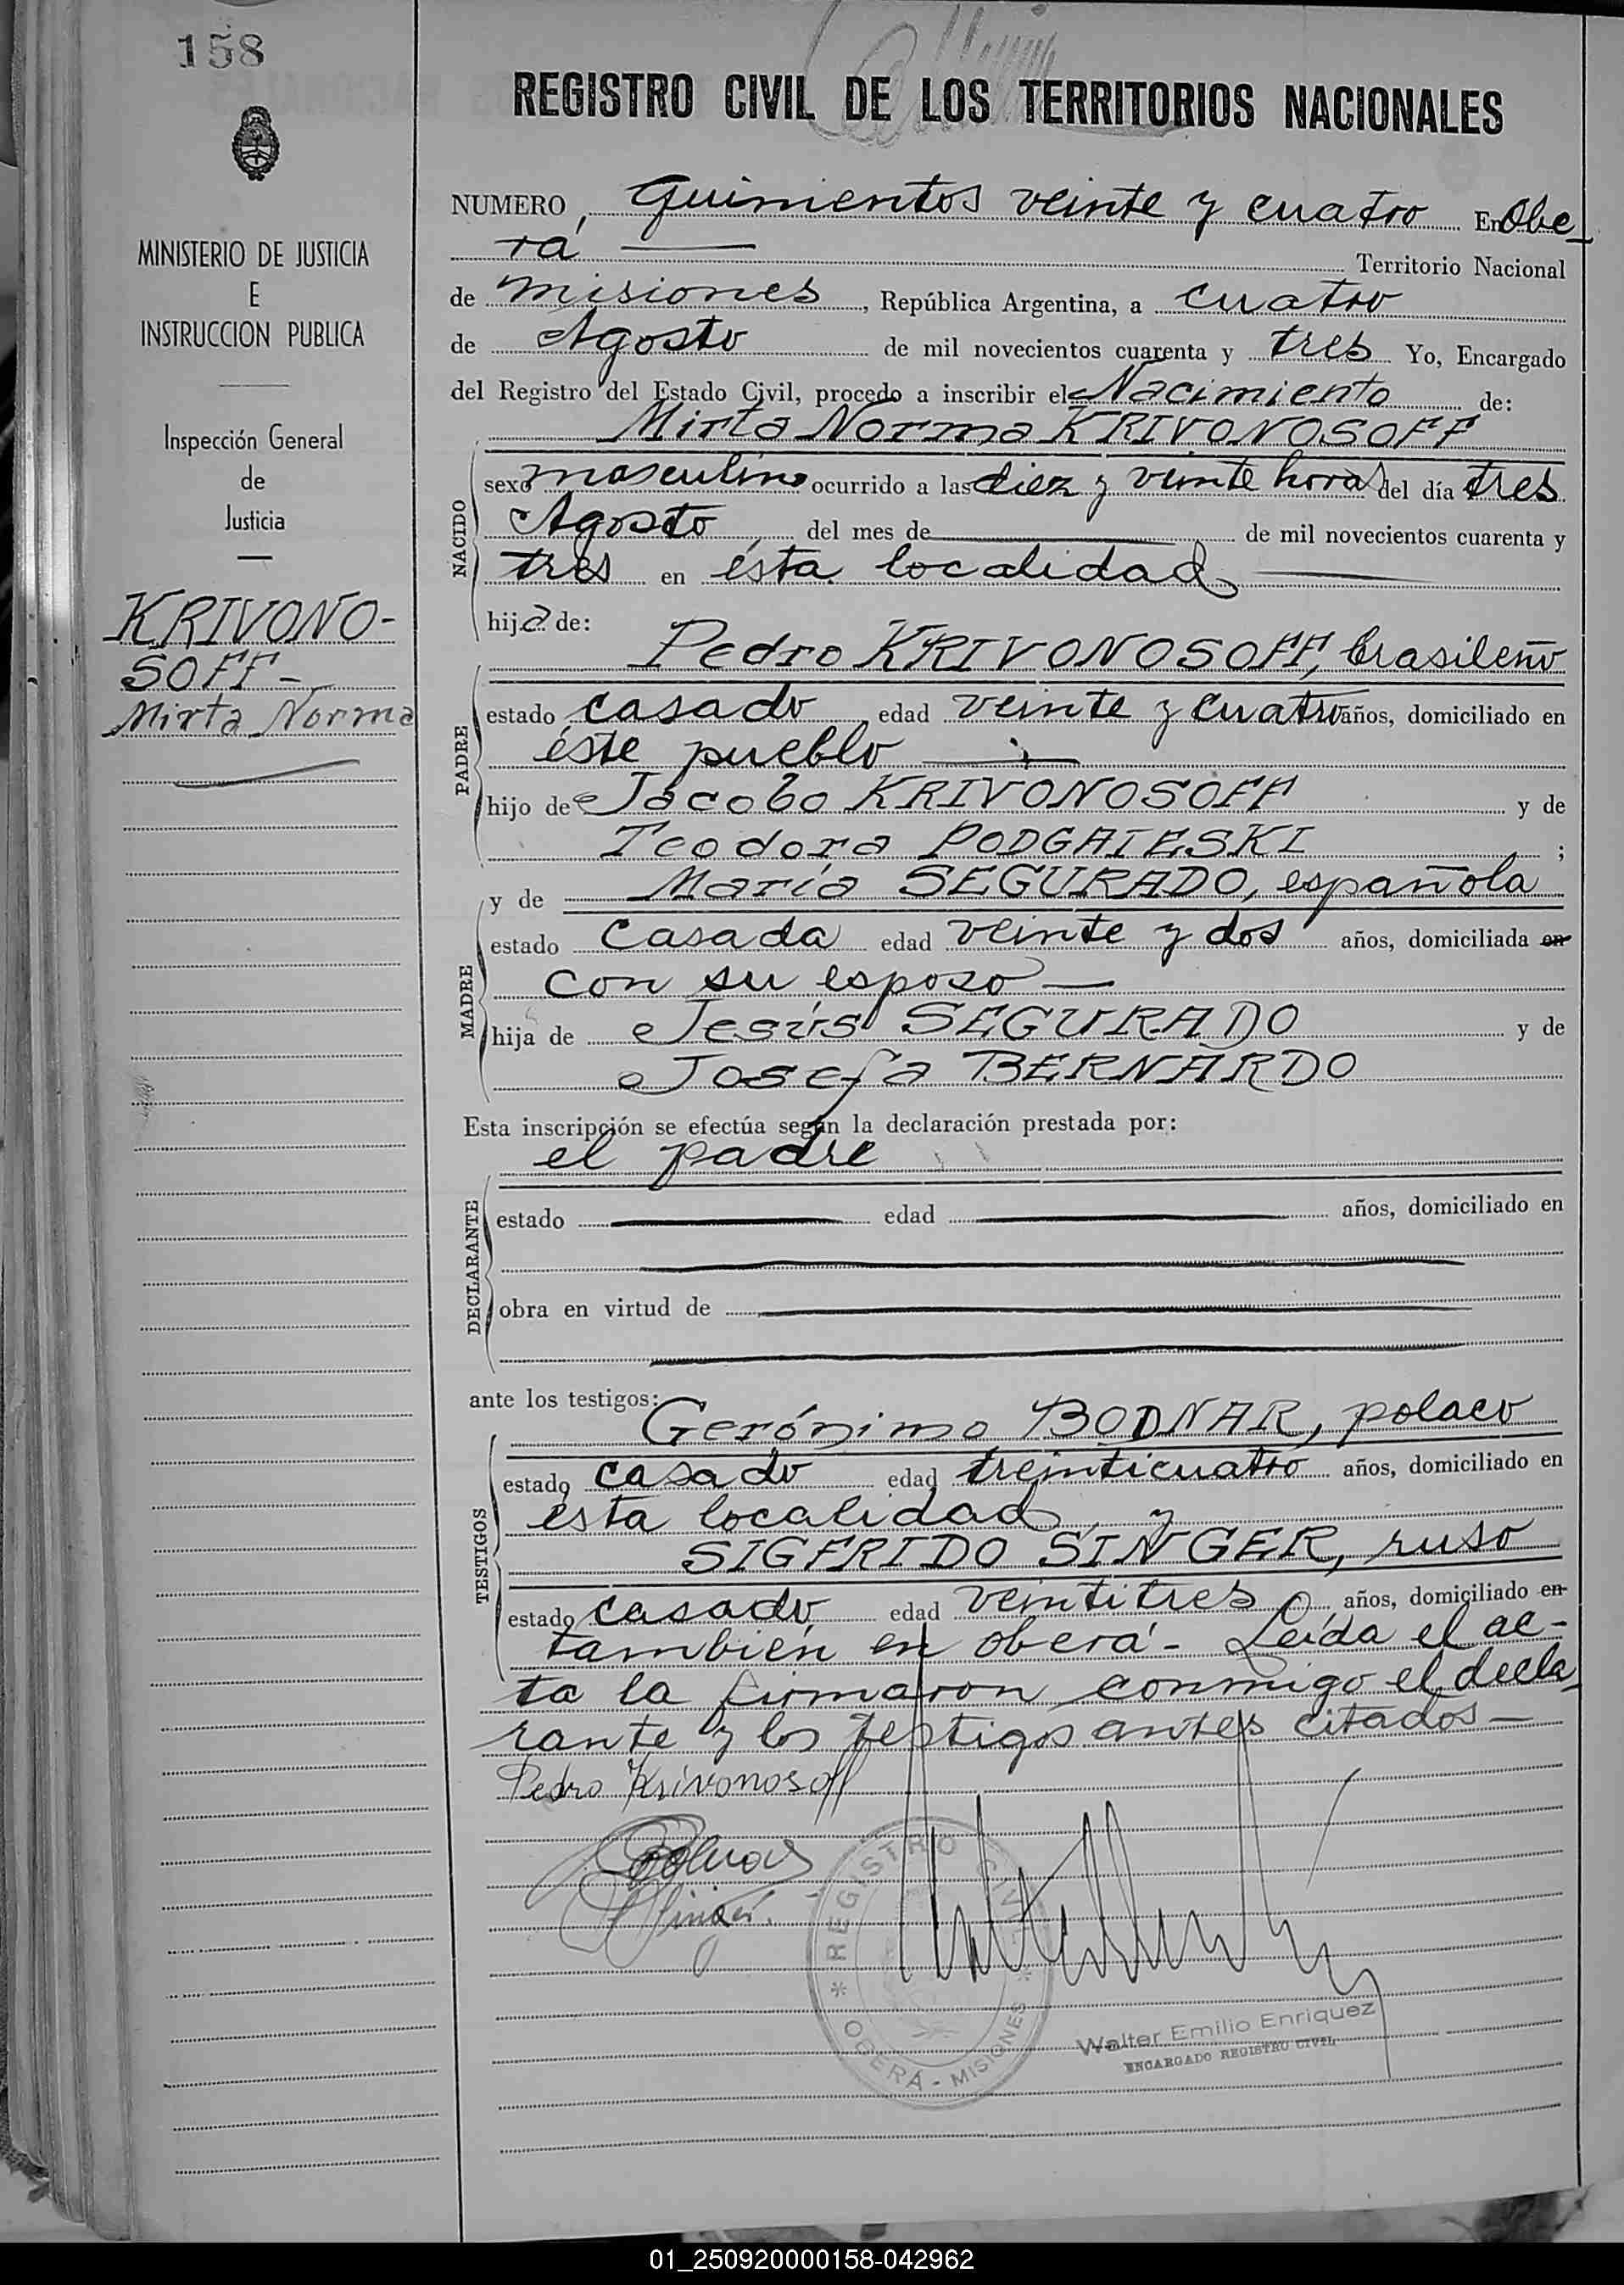 158
REGISTRO CIVIL DE LOS TERRITORIOS NACIONALES
MINISTERIO DE JUSTICIA
E
INSTRUCCION PUBLICA
Inspección General
de
Justicia
KRIVONO-
SOFF-
Mirta Norma
NUMERO, Quinientos veinte y cuatro En Obe-
rá Territorio Nacional
de misiones, República Argentina, a cuatro
de Agosto de mil novecientos cuarenta y tres Yo, Encargado
del Registro del Estado Civil, procedo a inscribir el Nacimiento de:
Mirta Norma KRIVONOSOFF
NACIDO
sexo masculino ocurrido a las diez y veinte horas del día tres
Agosto del mes de de mil novecientos cuarenta y
tres en ésta localidad
hija de:
Pedro KRIVONOSOFF, brasileño
PADRE
estado casado edad veinte y cuatro años, domiciliado en
éste pueblo
hijo de Jacobo KRIVONOSOFF y de
Teodora PODGAIESKI ;
y de María SEGURADO, española
MADRE
estado casada edad veinte y dos años, domiciliada en
con su esposo
hija de Jesús SEGURADO y de
Josefa BERNARDO
Esta inscripción se efectúa según la declaración prestada por:
el padre
DECLARANTE
estado edad años, domiciliado en
obra en virtud de
ante los testigos:
Gerónimo BODNAR, polaco
TESTIGOS
estado casado edad treinticuatro años, domiciliado en
ésta localidad, y
SIGFRIDO SINGER, ruso
estado casado edad veintitres años, domiciliado en
también en oberá- Leída el ac-
ta la firmaron conmigo el decla-
rante y los testigos antes citados-
Pedro Krivonosoff
REGISTRO CIVIL
OBERÁ - MISIONES
Walter Emilio Enriquez
ENCARGADO REGISTRO CIVIL
01_250920000158-042962